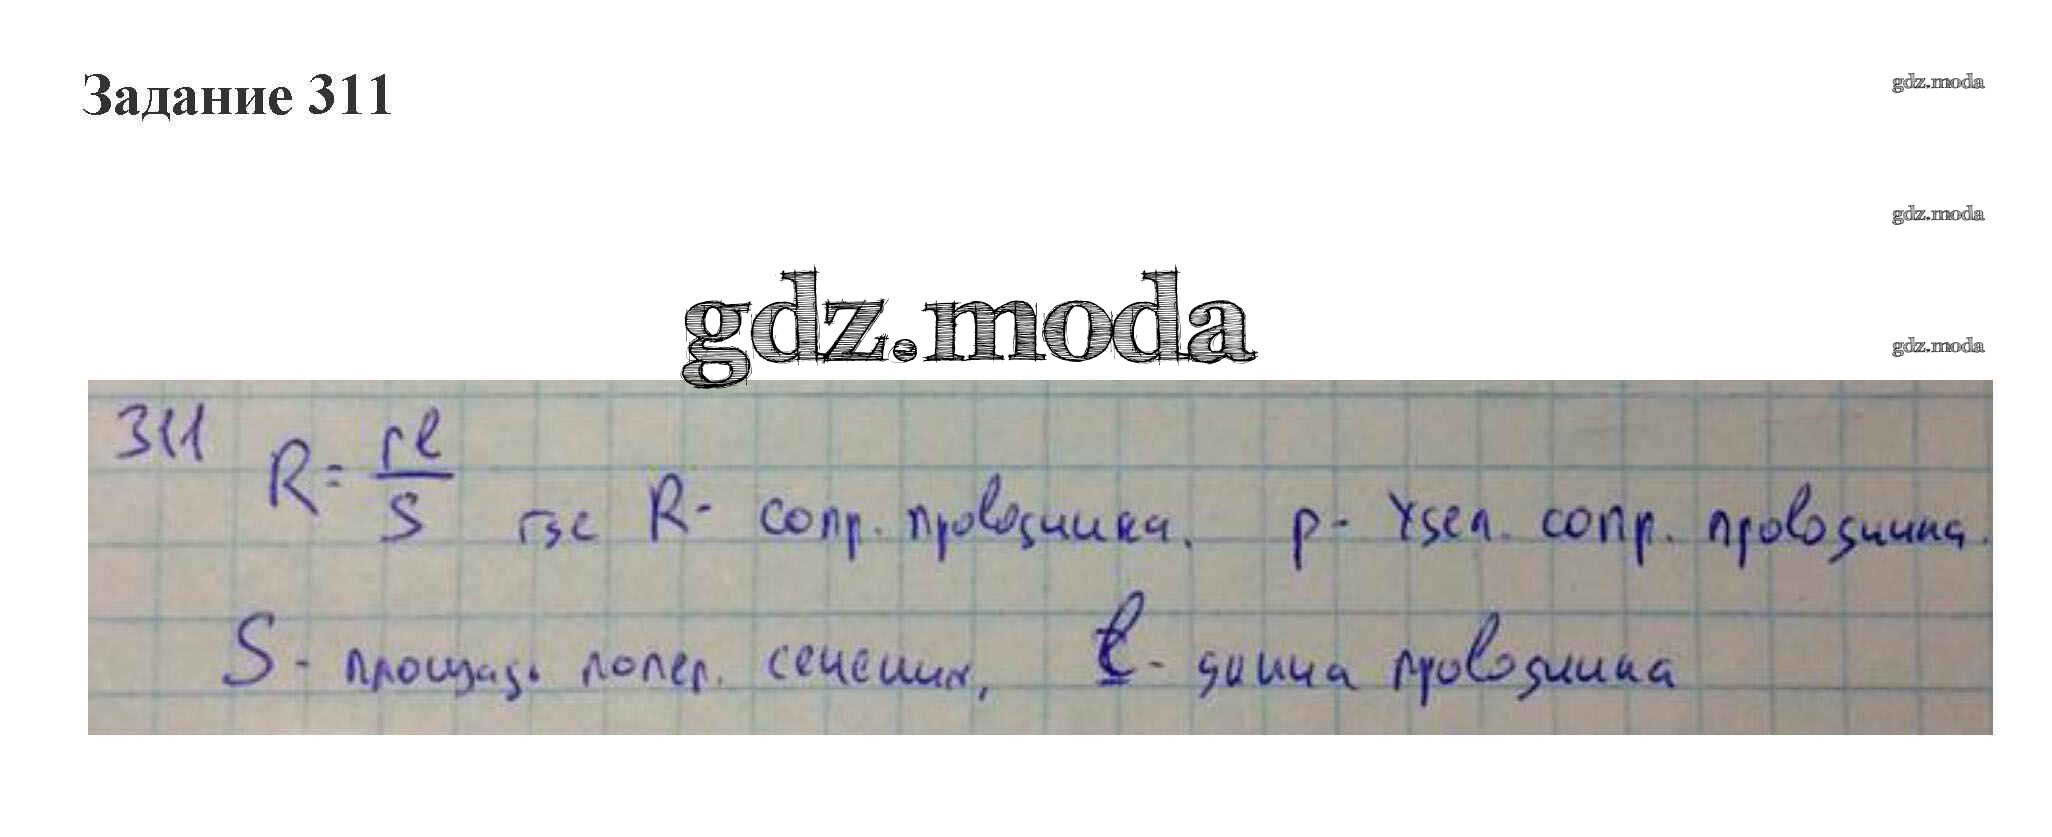 Задание 311
gdz.moda
gdz.moda
gdz.moda
gdz.moda
311 R = ρl/S где R - сопр. проводника. ρ - удел. сопр. проводника.
S - площадь попер. сечения, l - длина проводника